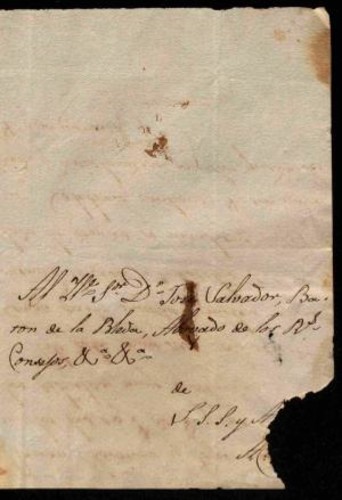 Al Mo. Sor. Dn. José Salvador, Ba-
ron de la Bleda, Abogado de los Rs.
Consejos, &a. &a.
de
S. S. S. y